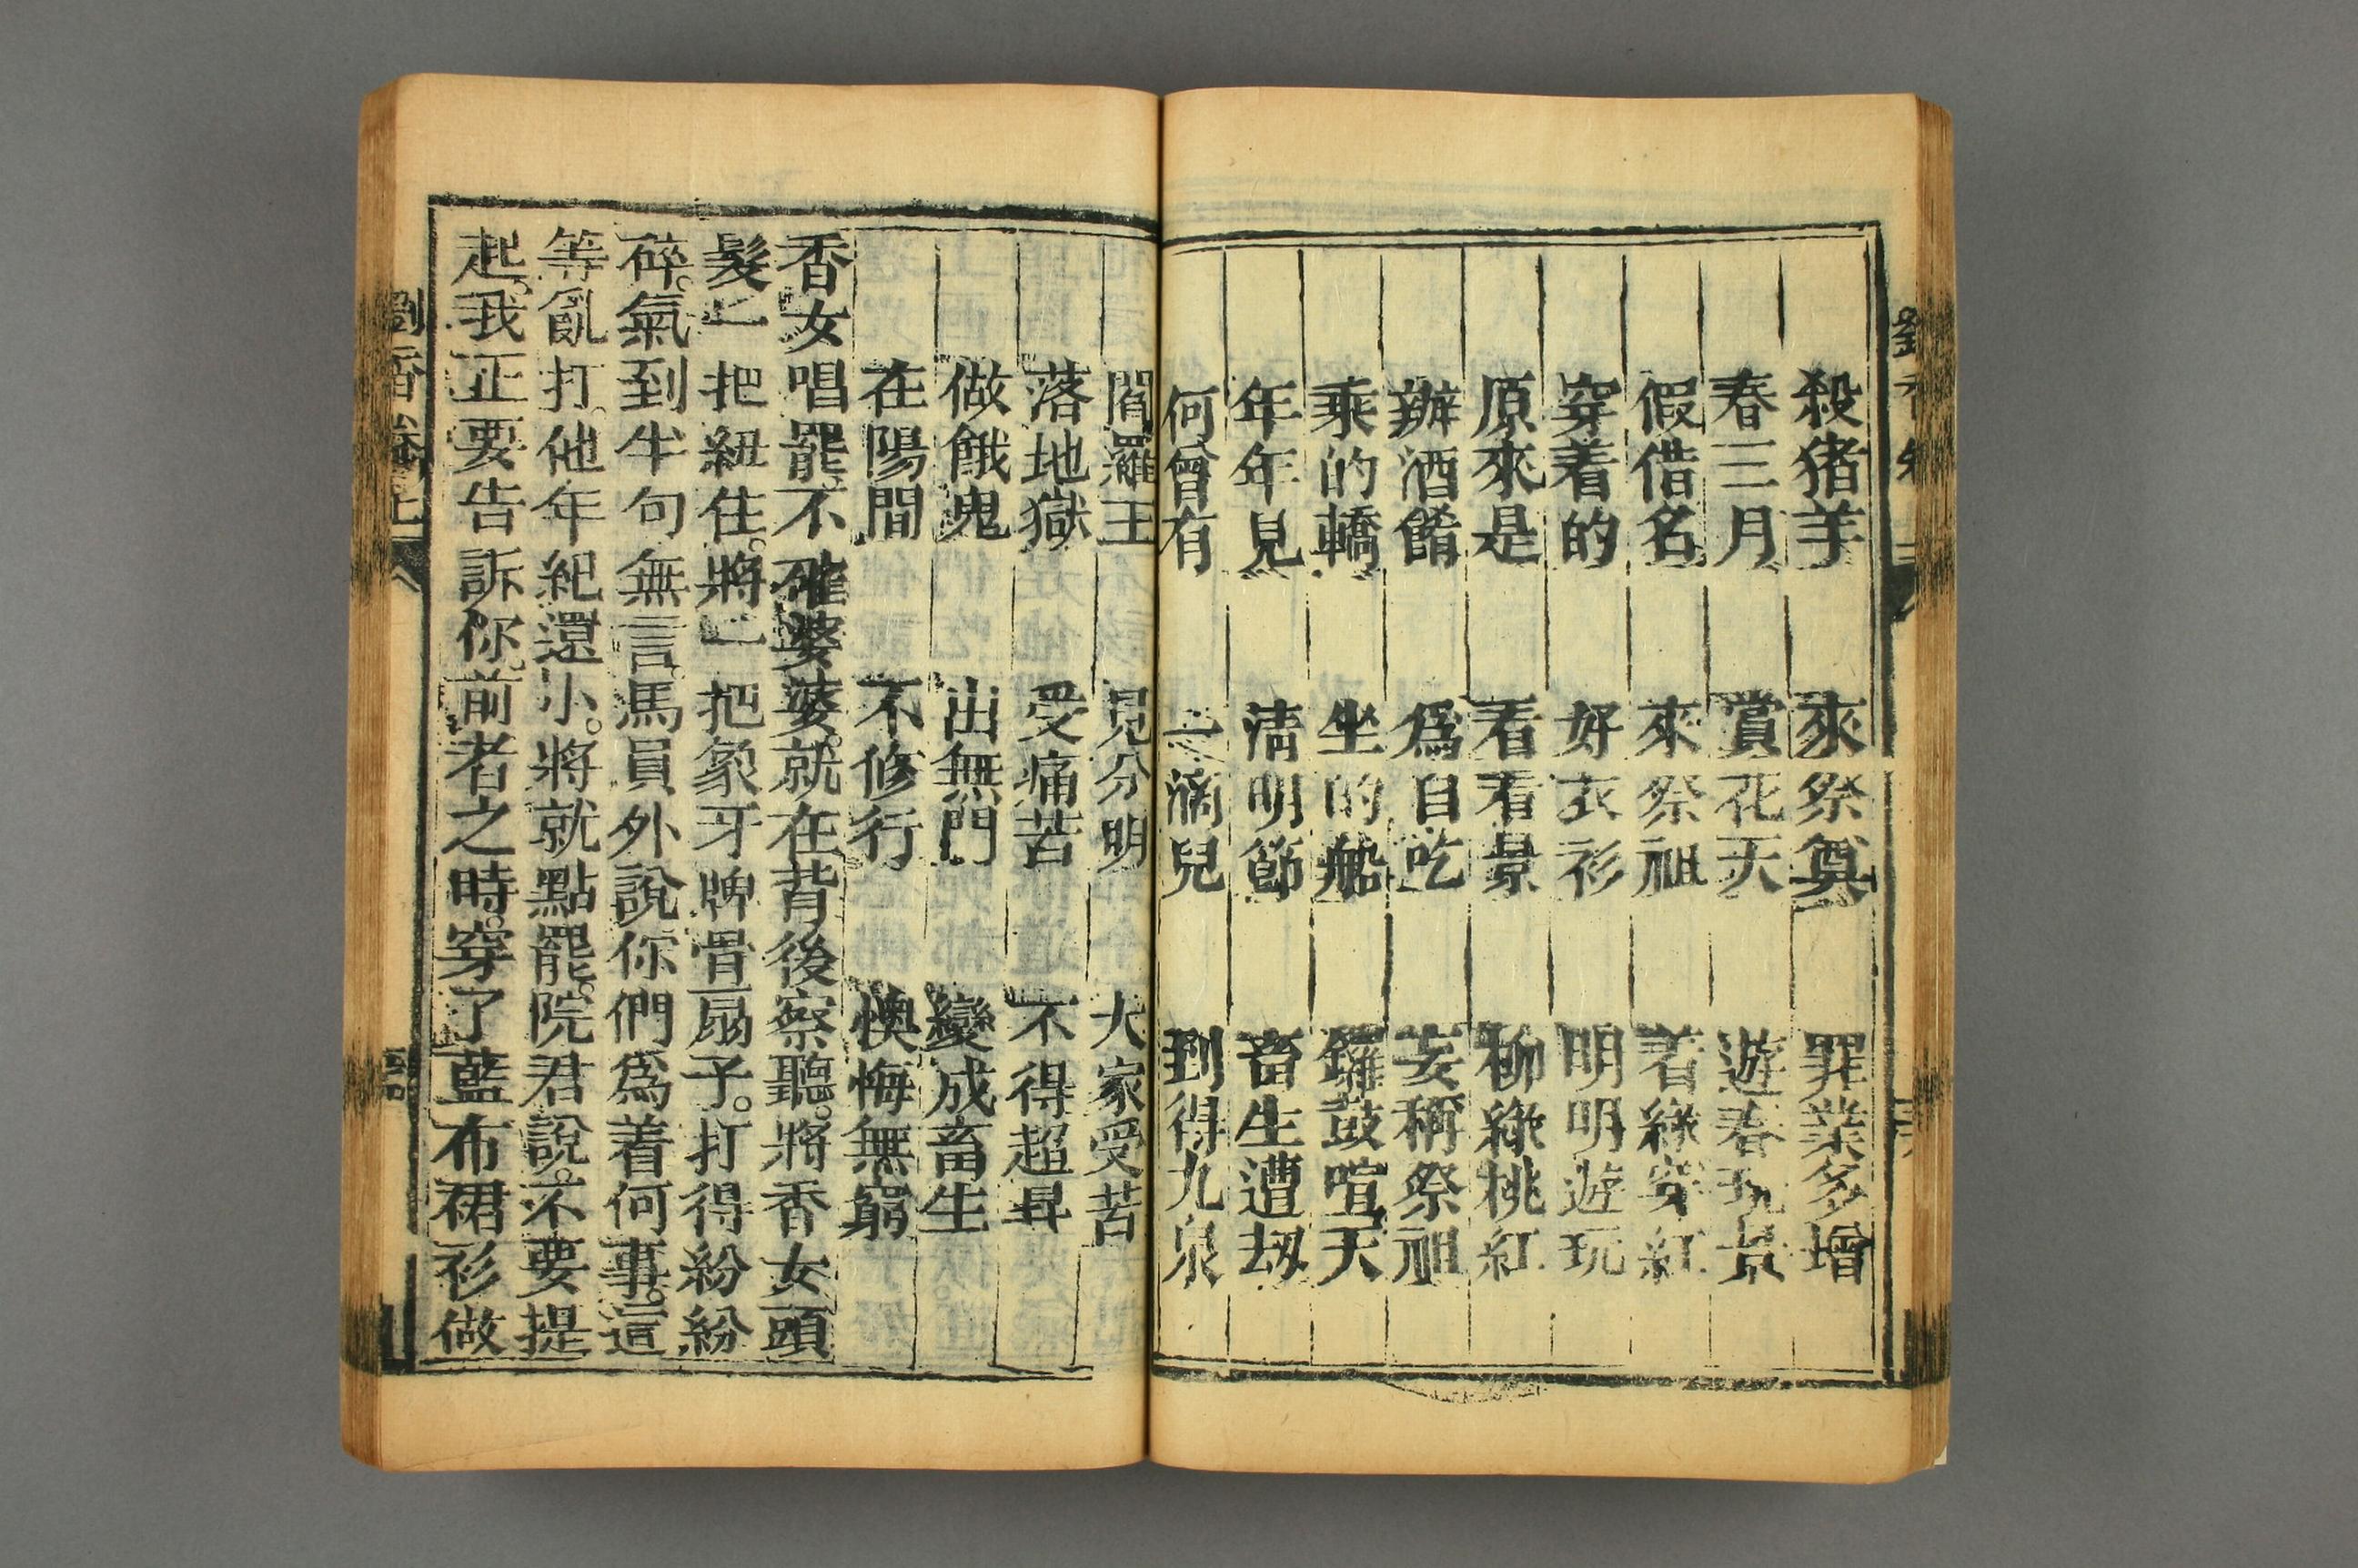 殺猪羊 來祭奠 罪業多增
春三月 賞花天 遊春玩景
假借名 來祭祖 着綠穿紅
穿着的 好衣衫 明明遊玩
原來是 看看景 柳綠桃紅
辦酒餚 爲自吃 妄稱祭祖
乘的轎 坐的船 鑼鼓喧天
年年見 清明節 畜生遭刼
何曾有 一滴兒 到得九泉
閻羅王 見分明 大家受苦
落地獄 受痛苦 不得超昇
做餓鬼 出無門 變成畜生
在陽間 不修行 懊悔無窮
香女唱罷。不確婆婆。就在背後察聽。將香女頭
髮一把紐住。將一把象牙牌骨扇子。打得紛紛
碎。氣到半句無言。馬員外說你們爲着何事。這
等亂打。他年紀還小。將就點罷。院君說。不要提
起。我正要告訴你。前者之時。穿了藍布裙衫做
劉香卷上 八